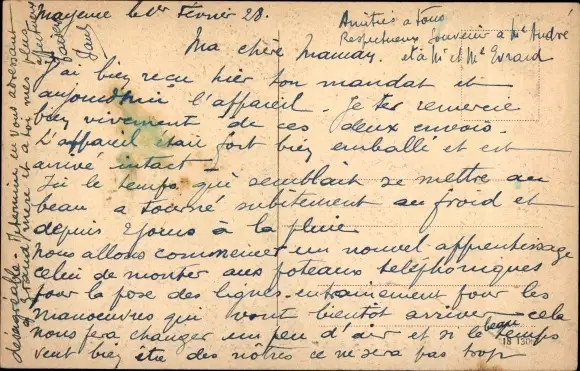 Mayence le 1er Février 28.
Ma chère Maman,
J'ai bien reçu hier ton mandat et
aujourd'hui l'appareil. Je te remercie
bien vivement de ces deux envois.
L'appareil était fort bien emballé et est
arrivé intact
Ici le temps, qui semblait se mettre au
beau a tourné subitement au froid et
depuis 2 jours à la pluie
Nous allons commencer un nouvel apprentissage
celui de monter aux poteaux téléphoniques
pour la pose des lignes, entrainement pour les
manoeuvres qui vont bientôt arriver cela
nous fera changer un peu d'air et si le beau temps
veut bien être des nôtres ce ne sera pas trop
désagréable. Je termine en vous adressant
à mes plus
Amitiés à tous
Respectueux souvenir à Me André
et à Mr et Me Evrard
18 130